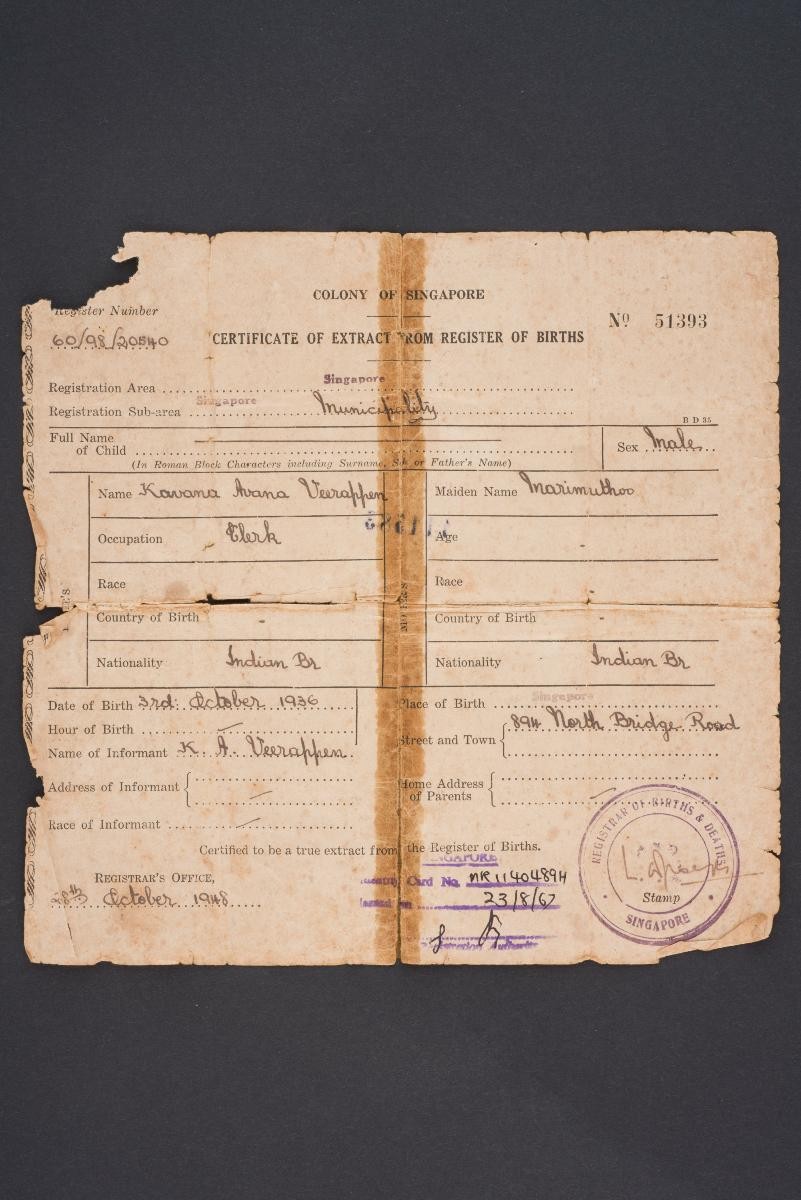 COLONY OF SINGAPORE
Register Number
60/98/20540
CERTIFICATE OF EXTRACT FROM REGISTER OF BIRTHS
Nº 51393
Registration Area Singapore
Registration Sub-area Singapore Municipality
B D 35
Full Name of Child
(In Roman Block Characters including Surname, or Father's Name)
Sex Male
Name Kavana Avana Veerappen
Maiden Name Marimuthoo
Occupation Clerk
Age -
Race
Race
Country of Birth -
Country of Birth -
Nationality Indian Br
Nationality Indian Br
Date of Birth 3rd: October 1936
Place of Birth Singapore
Hour of Birth
Street and Town 894 North Bridge Road
Name of Informant K. A. Veerappen.
Address of Informant
Home Address of Parents
Race of Informant
Certified to be a true extract from the Register of Births.
REGISTRAR'S OFFICE,
28th October 1948
SINGAPORE
Card No. NRIC 1140489H
23/8/67
REGISTRAR OF BIRTHS & DEATHS
Stamp
SINGAPORE